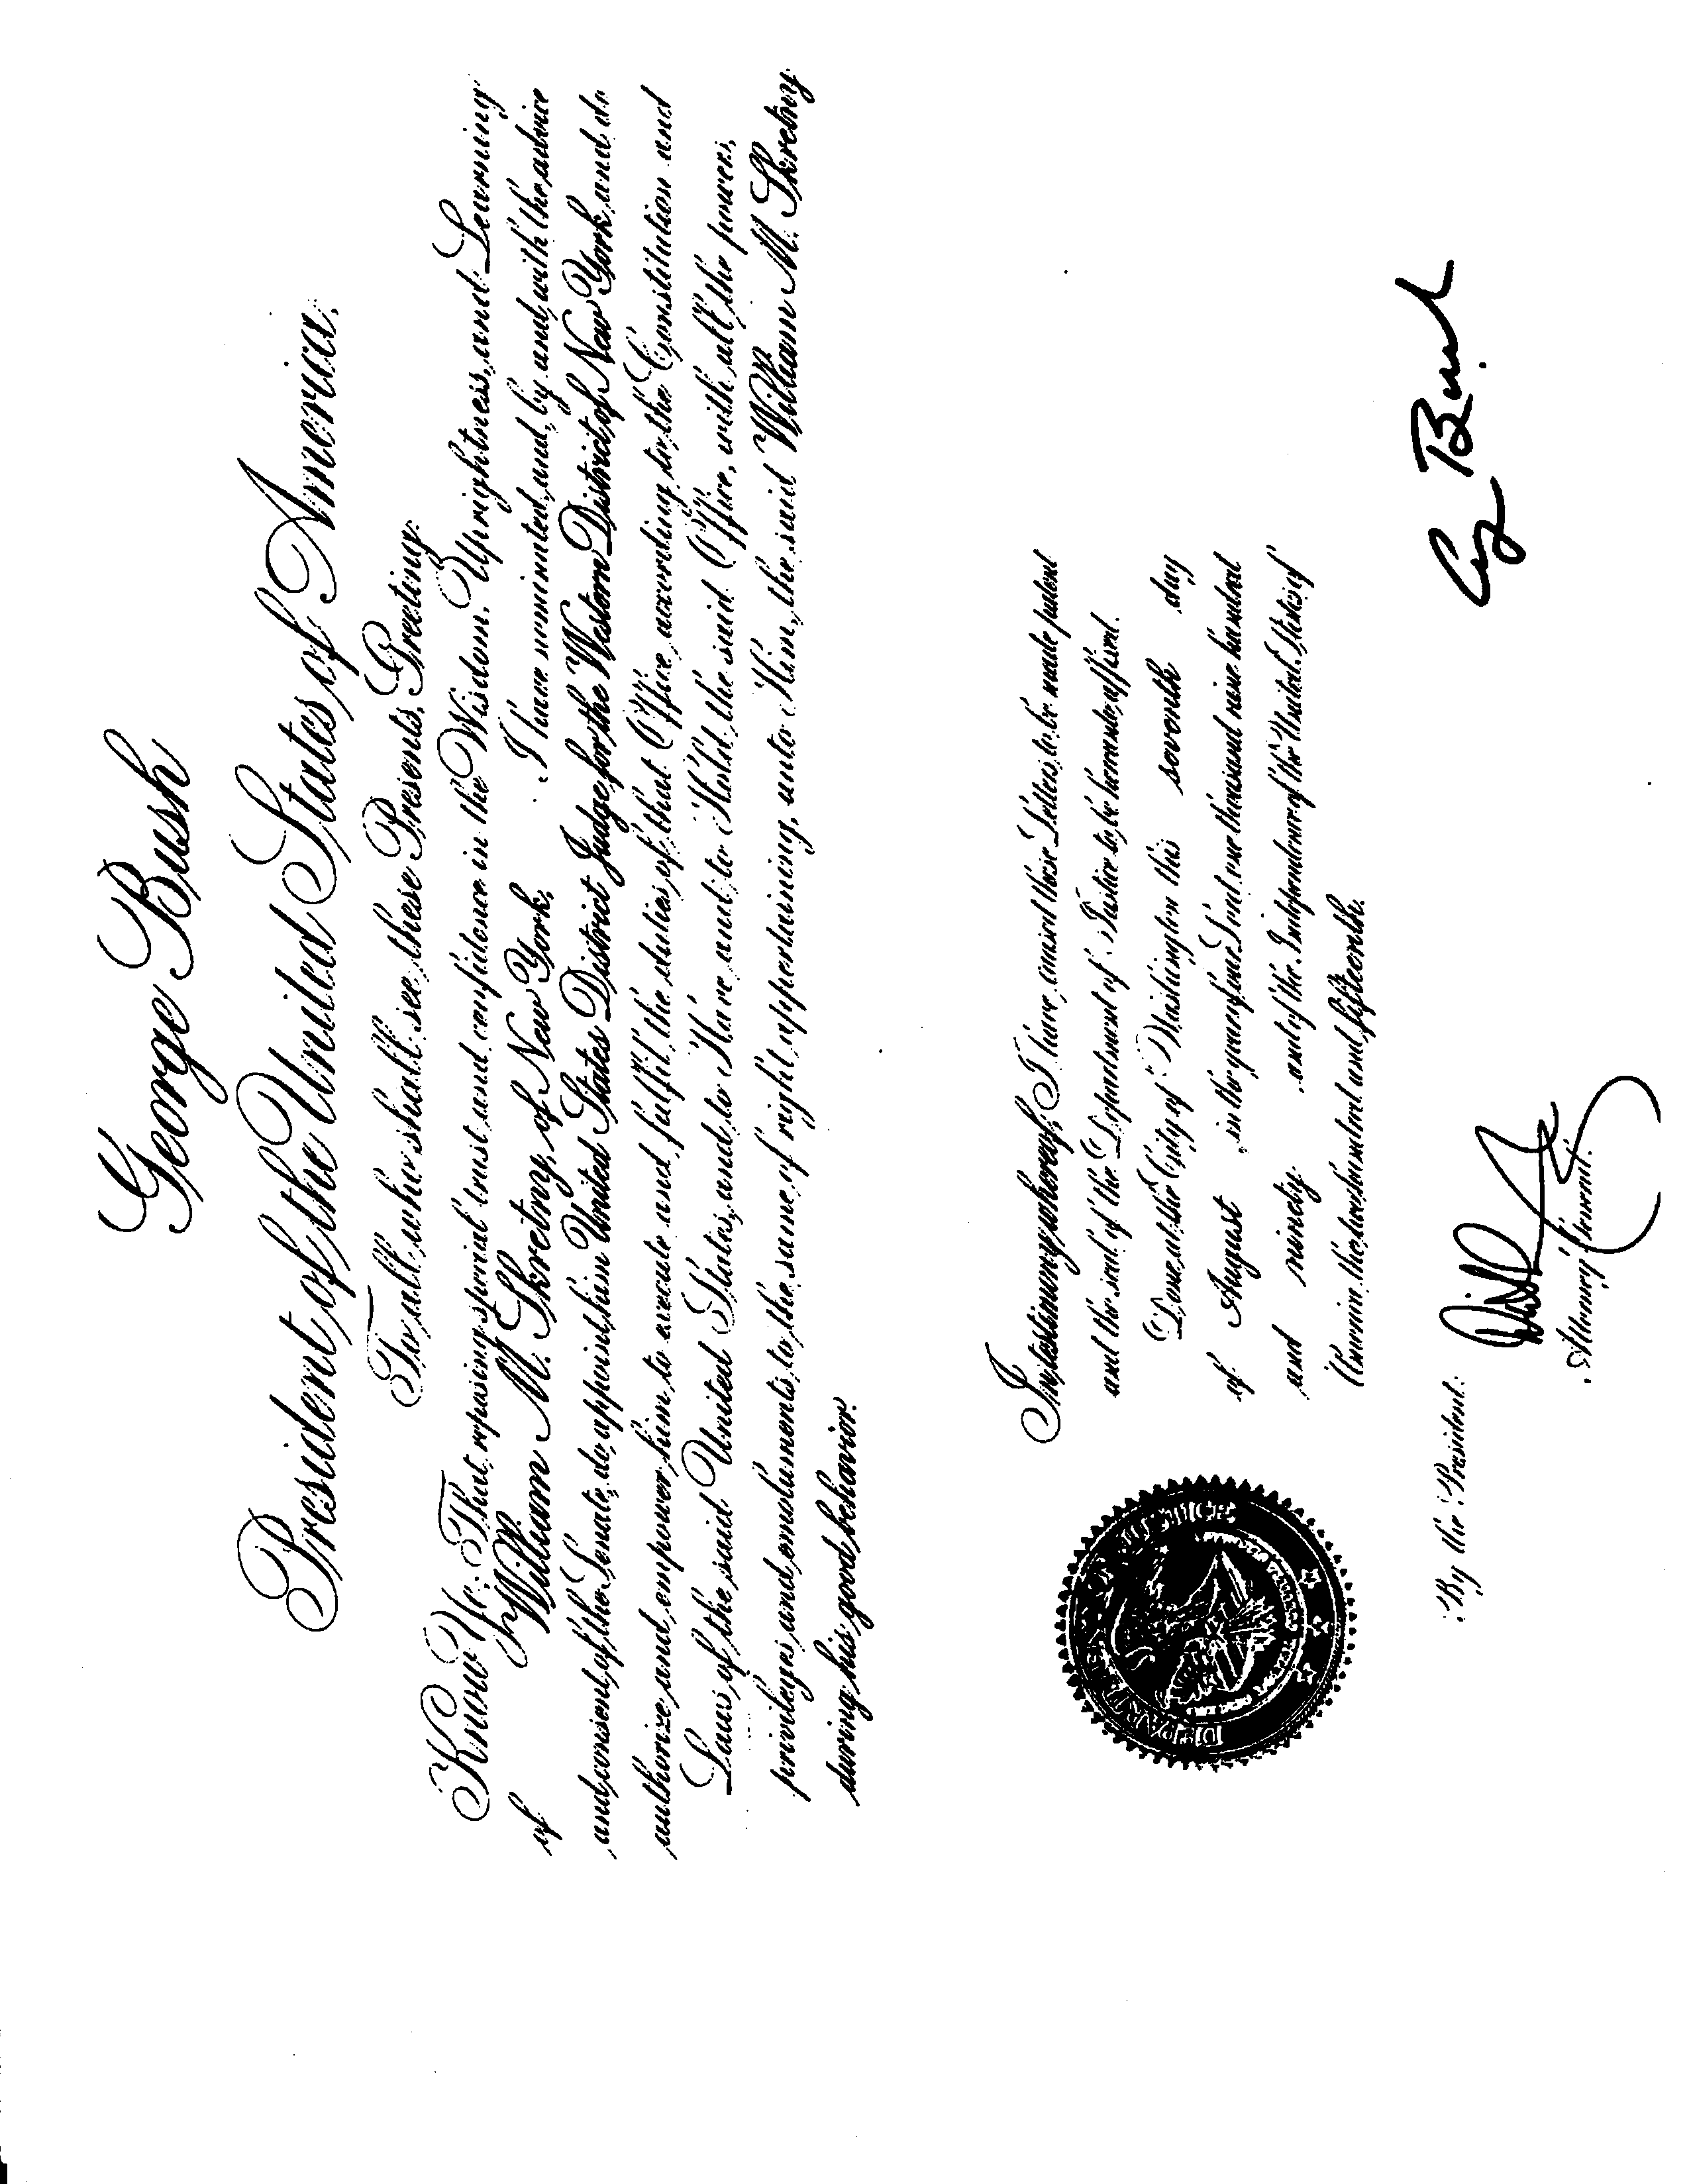 George Bush
President of the United States of America.
To all who shall see these Presents, Greeting:
Know Ye; That, reposing special trust and confidence in the Wisdom, Uprightness, and Learning
of William M. Skretny, of New York, I have nominated, and, by and with the advice
and consent of the Senate, do appoint him United States District Judge for the Western District of New York, and do
authorize and empower him to execute and fulfil the duties of that Office according to the Constitution and
Laws of the said United States, and to Have and to Hold the said Office, with all the powers,
privileges and emoluments to the same of right appertaining, unto Him, the said William M. Skretny
during his good behavior.
In testimony whereof, I have caused these Letters to be made patent
and the seal of the Department of Justice to be hereunto affixed.
Done at the City of Washington this seventh day
of August in the year of our Lord one thousand nine hundred
and ninety and of the Independence of the United States of
America the two hundred and fifteenth.
DEPARTMENT OF JUSTICE
G Bush
By the President:
Attorney General.